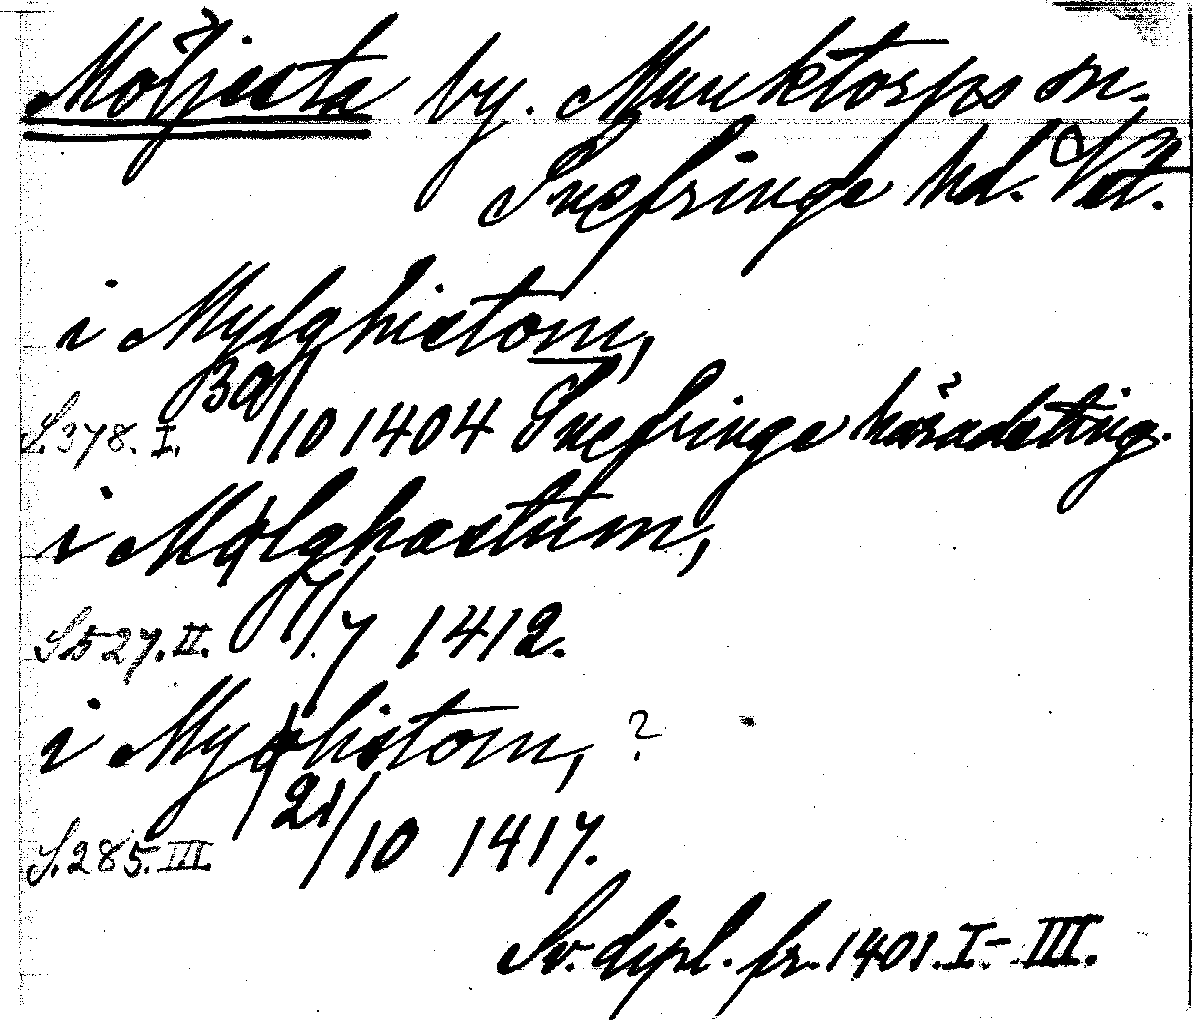 Möljesta by. Munktorps sn.
Snefringe hd. Vstl.
i Mylghistom,
S. 378. I. 30/10 1404 Snefringe häradsting.
i Mølghastum,
S 527. II. 7/7 1412.
i Myøhistom, ?
S. 285. III. 21/10 1417.
Sv. dipl. fr. 1401. I.-III.